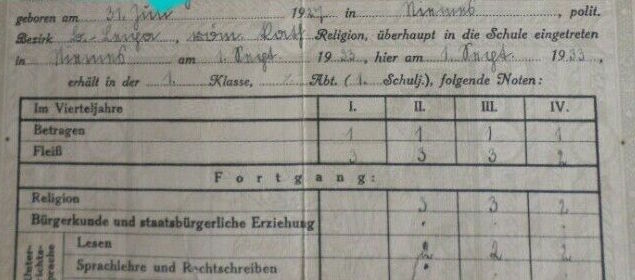 geboren am 31. Juni 1927 in Niemes, polit.
Bezirk B. Leipa, röm. kath. Religion, überhaupt in die Schule eingetreten
in Niemes am 1. Sept. 1933, hier am 1. Sept. 1933,
erhält in der 1. Klasse, Abt. (1. Schulj.), folgende Noten:
Im Vierteljahre I. II. III. IV.
Betragen 1 1 1 1
Fleiß 3 3 3 2
Fortgang:
Religion 3 3 2
Bürgerkunde und staatsbürgerliche Erziehung
Lesen 2 2 2
Sprachlehre und Rechtschreiben